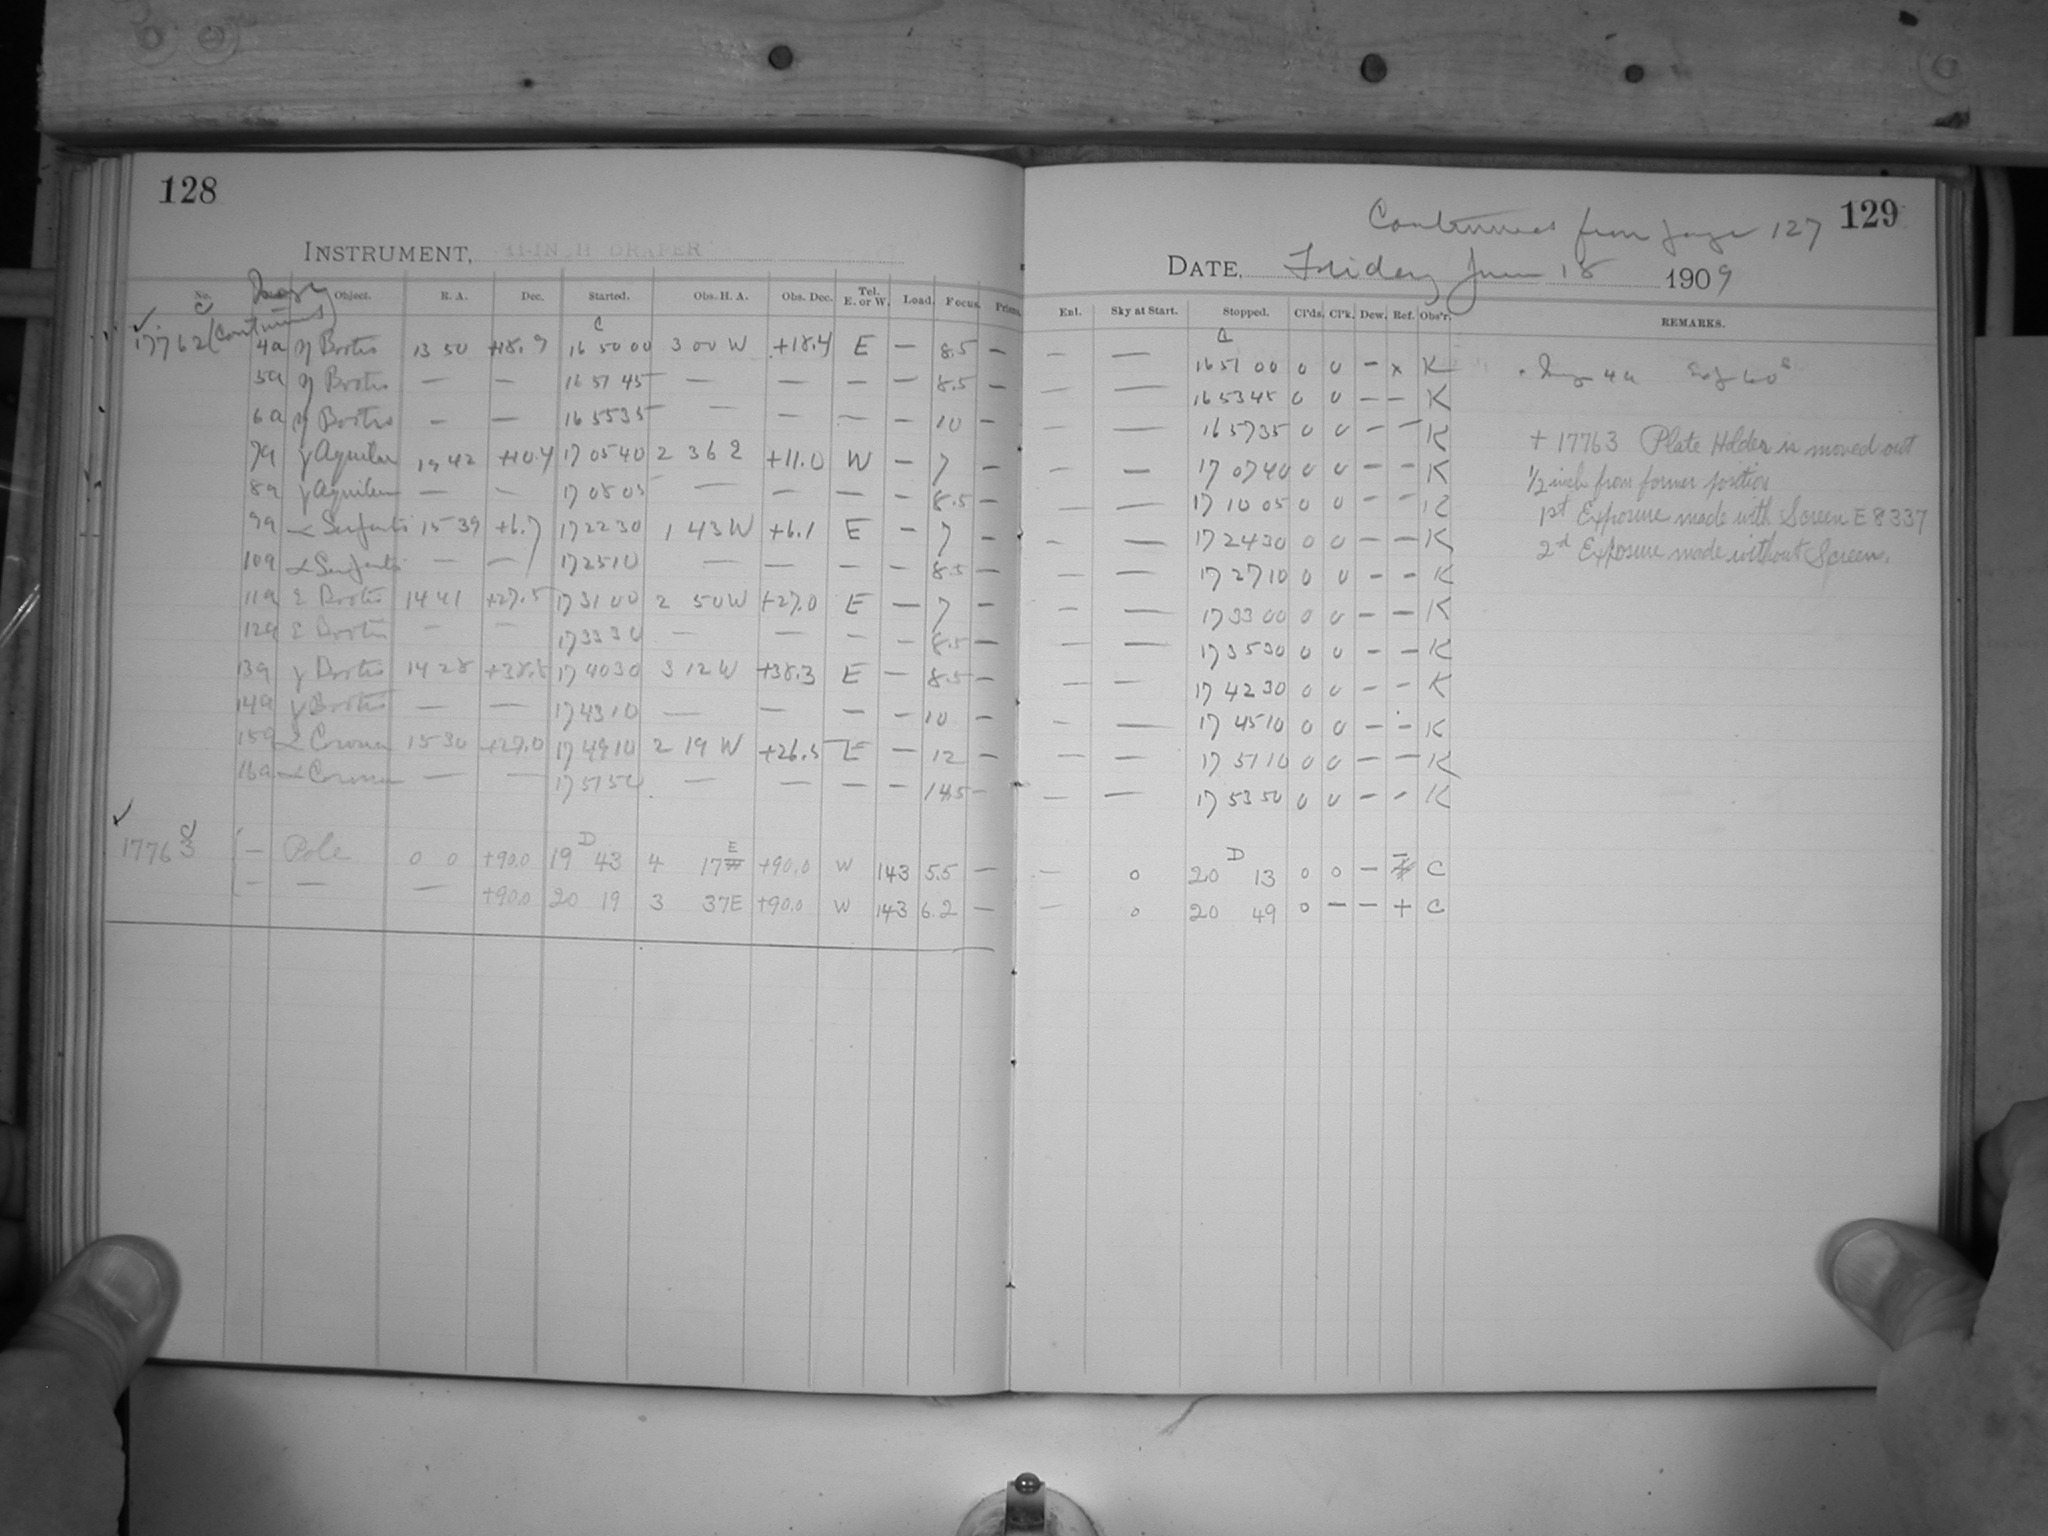 128
INSTRUMENT, 11-INCH DRAPER
No. Image Object. R. A. Dec. Started. Obs. H. A. Obs. Dec. Tel. E. or W. Load. Focus. Prism.
C C
17762 (Continued) 4a η Bootis 13 50 +18.9 16 50 00 3 00 W +18.4 E — 8.5 —
5a η Bootis — — 16 51 45 — — — — 8.5 —
6a η Bootis — — 16 55 35 — — — — 10 —
7a γ Aquilae 19 42 +10.4 17 05 40 2 36 E +11.0 W — 7 —
8a γ Aquilae — — 17 08 05 — — — — 8.5 —
9a α Serpentis 15 39 +6.7 17 22 30 1 43 W +6.1 E — 7 —
10a α Serpentis — — 17 25 10 — — — — 8.5 —
11a ε Bootis 14 41 +27.5 17 31 00 2 50 W +27.0 E — 7 —
12a ε Bootis — — 17 33 30 — — — — 8.5 —
13a γ Bootis 14 28 +38.8 17 40 30 3 12 W +38.3 E — 8.5 —
14a γ Bootis — — 17 43 10 — — — — 10 —
15a α Corona 15 30 +27.0 17 49 10 2 19 W +26.5 E — 12 —
16a α Corona — — 17 51 50 — — — — 14.5 —
C D E
17763 — Pole 0 0 +90.0 19 43 4 17 +90.0 W 143 5.5 —
— — — +90.0 20 19 3 37 E +90.0 W 143 6.2 —
Continued from page 127 129
DATE, Friday June 18 1909
Enl. Sky at Start. Stopped. Cl'ds. Cl'k. Dew. Ref. Obs'r. REMARKS.
C
— — 16 51 00 0 0 — x K Image 4a Exp 60s
— — 16 53 45 0 0 — — K
— — 16 57 35 0 0 — — K + 17763 Plate Holder is moved out
— — 17 07 40 0 0 — — K 1/2 inch from former position
— — 17 10 05 0 0 — — K 1st Exposure made with Screen E 8337
— — 17 24 30 0 0 — — K 2d Exposure made without Screen.
— — 17 27 10 0 0 — — K
— — 17 33 00 0 0 — — K
— — 17 35 30 0 0 — — K
— — 17 42 30 0 0 — — K
— — 17 45 10 0 0 — — K
— — 17 51 10 0 0 — — K
— — 17 53 50 0 0 — — K
D
— 0 20 13 0 0 — — C
— 0 20 49 0 — — + C